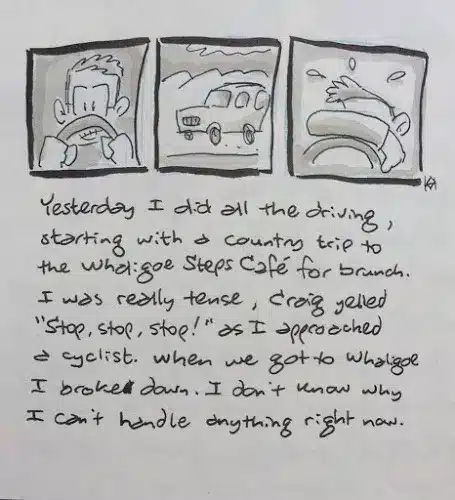 Yesterday I did all the driving,
starting with a country trip to
the Whaligoe Steps Café for brunch.
I was really tense, Craig yelled
"Stop, stop, stop!" as I approached
a cyclist. When we got to Whalgoe
I broke down. I don't know why
I can't handle anything right now.